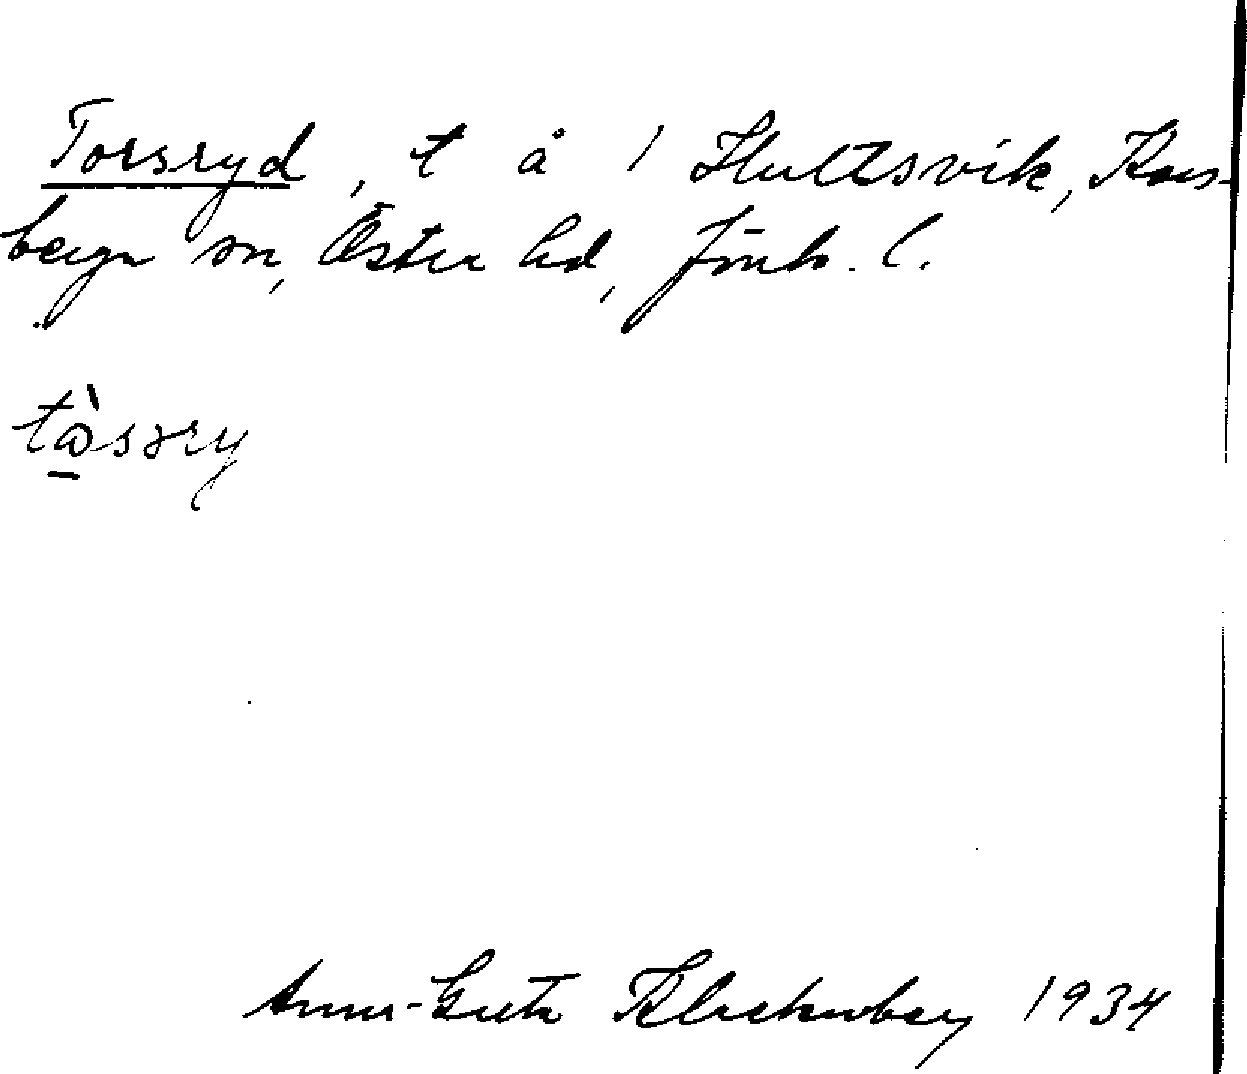 Torsryd, t å 1 Hultsvik, Kors-
berga sn, Östra hd, Jönk. l.
tɷ̀səry
Anna-Greta Klackenberg 1934